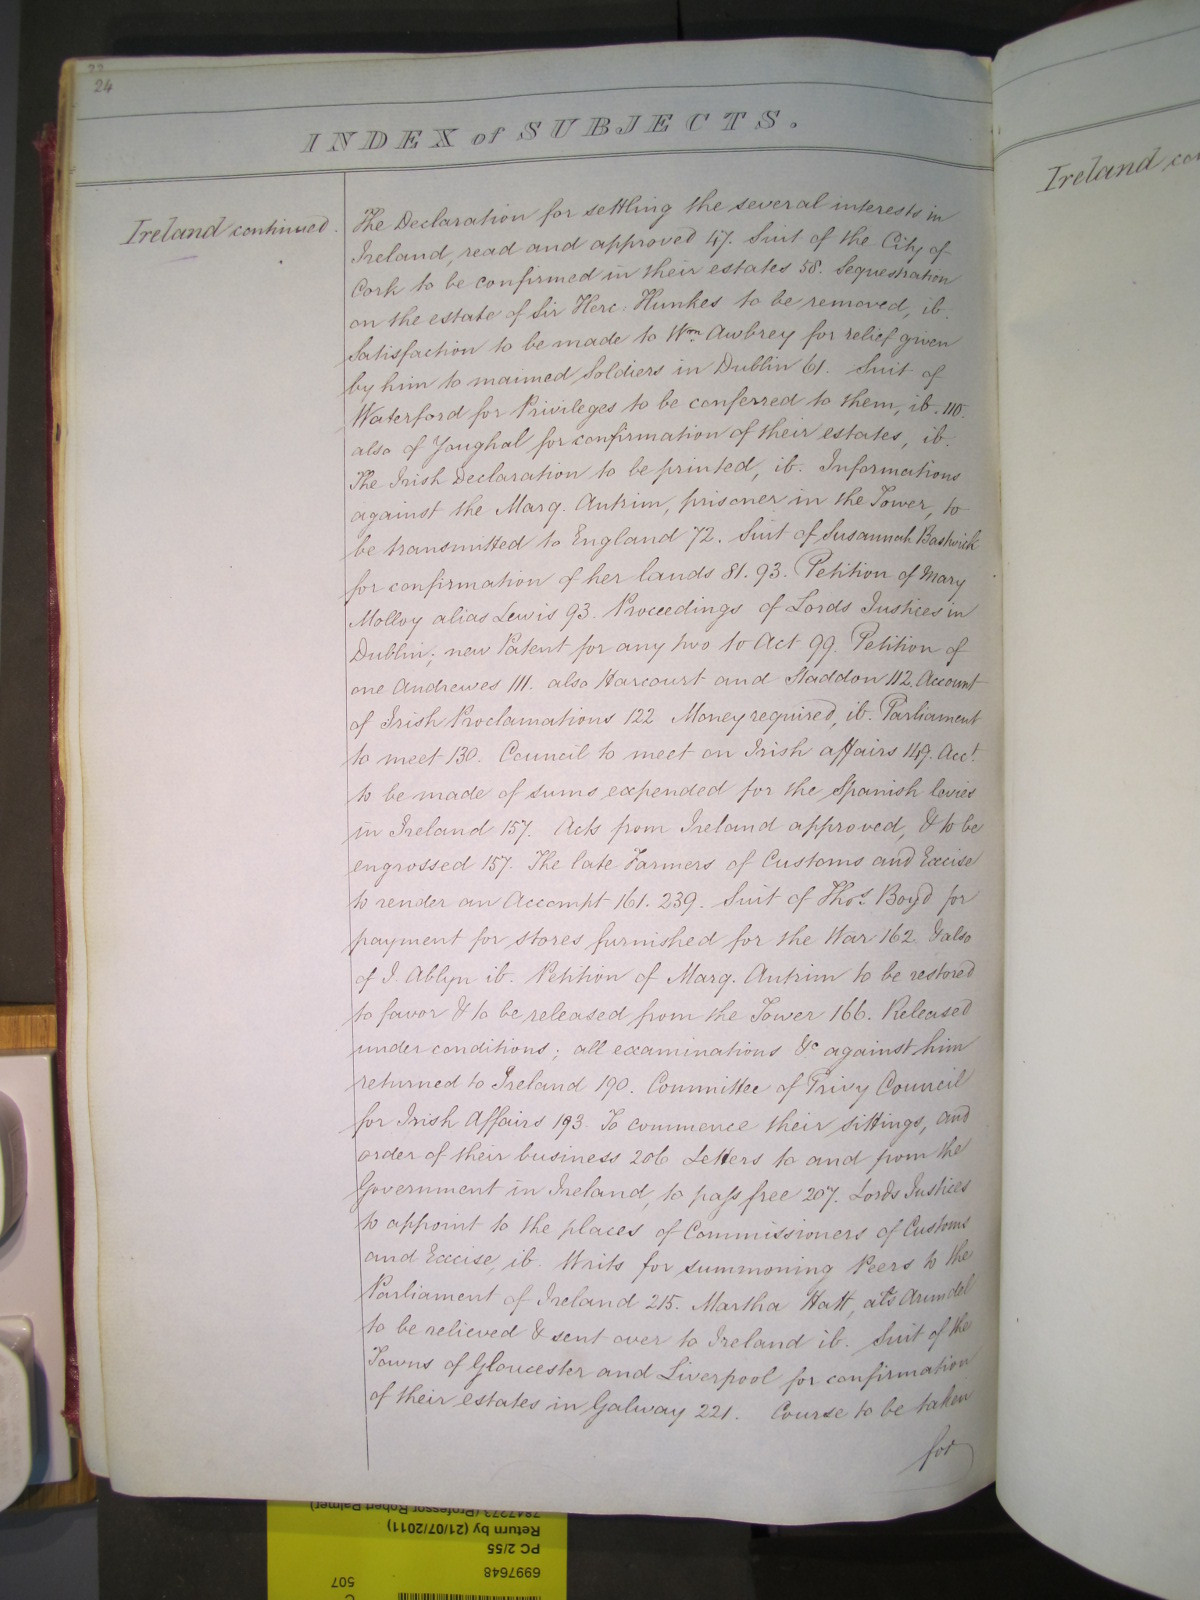 22
24
INDEX of SUBJECTS.
Ireland continued.
The Declaration for settling the several interests in
Ireland, read and approved 47. Suit of the City of
Cork to be confirmed in their estates 58. Sequestration
on the estate of Sir Herc: Hunkes to be removed, ib.
Satisfaction to be made to Wm. Awbrey for relief given
by him to maimed Soldiers in Dublin 61. Suit of
Waterford for Privileges to be conferred to them, ib. 110.
also of Youghal for confirmation of their estates, ib.
The Irish Declaration to be printed, ib. Informations
against the Marq. Antrim, prisoner in the Tower, to
be transmitted to England 72. Suit of Susannah Bastwick
for confirmation of her lands 81. 93. Petition of Mary
Molloy alias Lewis 93. Proceedings of Lords Justices in
Dublin; new Patent for any two to Act 99. Petition of
one Andrewes 111. also Harcourt and Staddon 112. Account
of Irish Proclamations 122 Money required, ib. Parliament
to meet 130. Council to meet on Irish affairs 149. Acct.
to be made of sums expended for the Spanish levies
in Ireland 157. Acts from Ireland approved, & to be
engrossed 157. The late Farmers of Customs and Excise
to render an Accompt 161. 239. Suit of Thos. Boyd for
payment for stores furnished for the War 162. & also
of J. Ablyn ib. Petition of Marq. Antrim to be restored
to favor & to be released from the Tower 166. Released
under conditions; all examinations &c against him
returned to Ireland 190. Committee of Privy Council
for Irish Affairs 193. To commence their sittings, and
order of their business 206 Letters to and from the
Government in Ireland, to pass free 207. Lords Justices
to appoint to the places of Commissioners of Customs
and Excise, ib. Writs for summoning Peers to the
Parliament of Ireland 215. Martha Hatt, als Arundel
to be relieved & sent over to Ireland ib. Suit of the
Towns of Gloucester and Liverpool for confirmation
of their estates in Galway 221. Course to be taken
for
Ireland
7847273 (Professor Robert Palmer)
Return by (21/07/2011)
PC 2/55
6997648
507